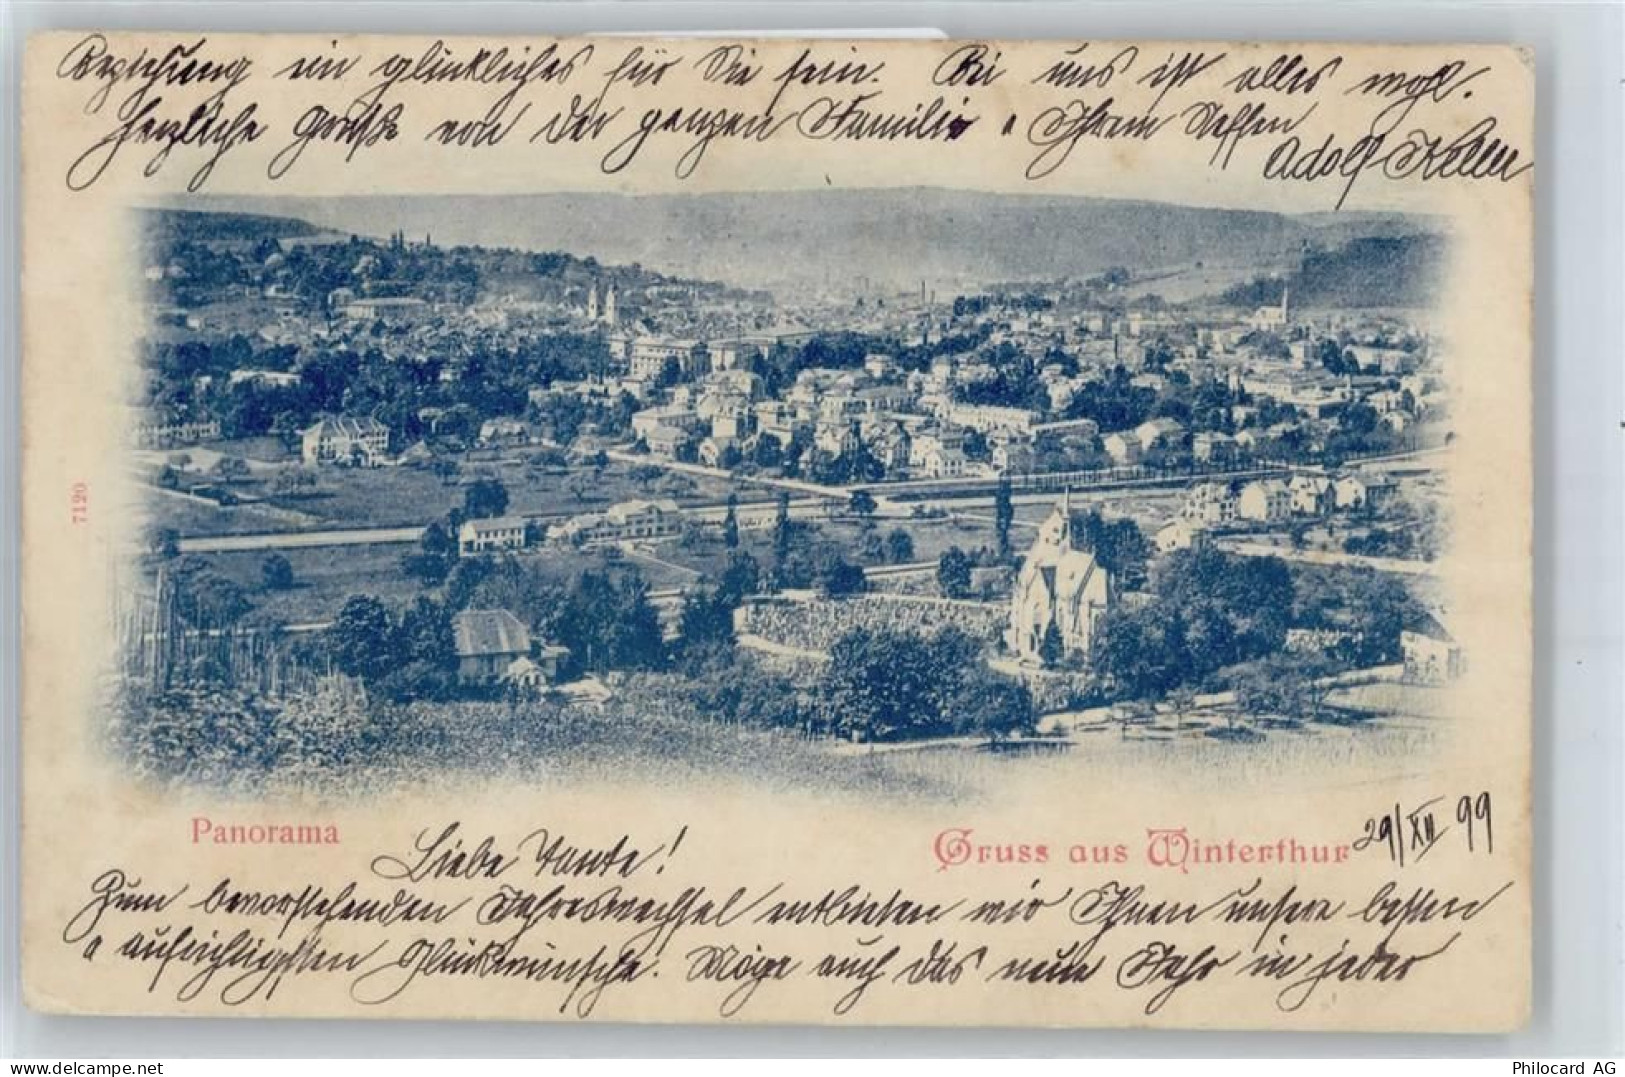 Beziehung ein glückliches für Sie sein. Bei uns ist alles wohl.
Herzliche Grüße von der ganzen Familie u Ihrem Neffen
Adolf Keller
7120
Panorama
Gruss aus Winterthur
29/XII 99
Liebe Tante!
Zum bevorstehenden Jahreswechsel entbieten wir Ihnen unsere besten
u aufrichtigsten Glückwünsche. Möge auch das neue Jahr in jeder
delcampe.net
Philocard AG